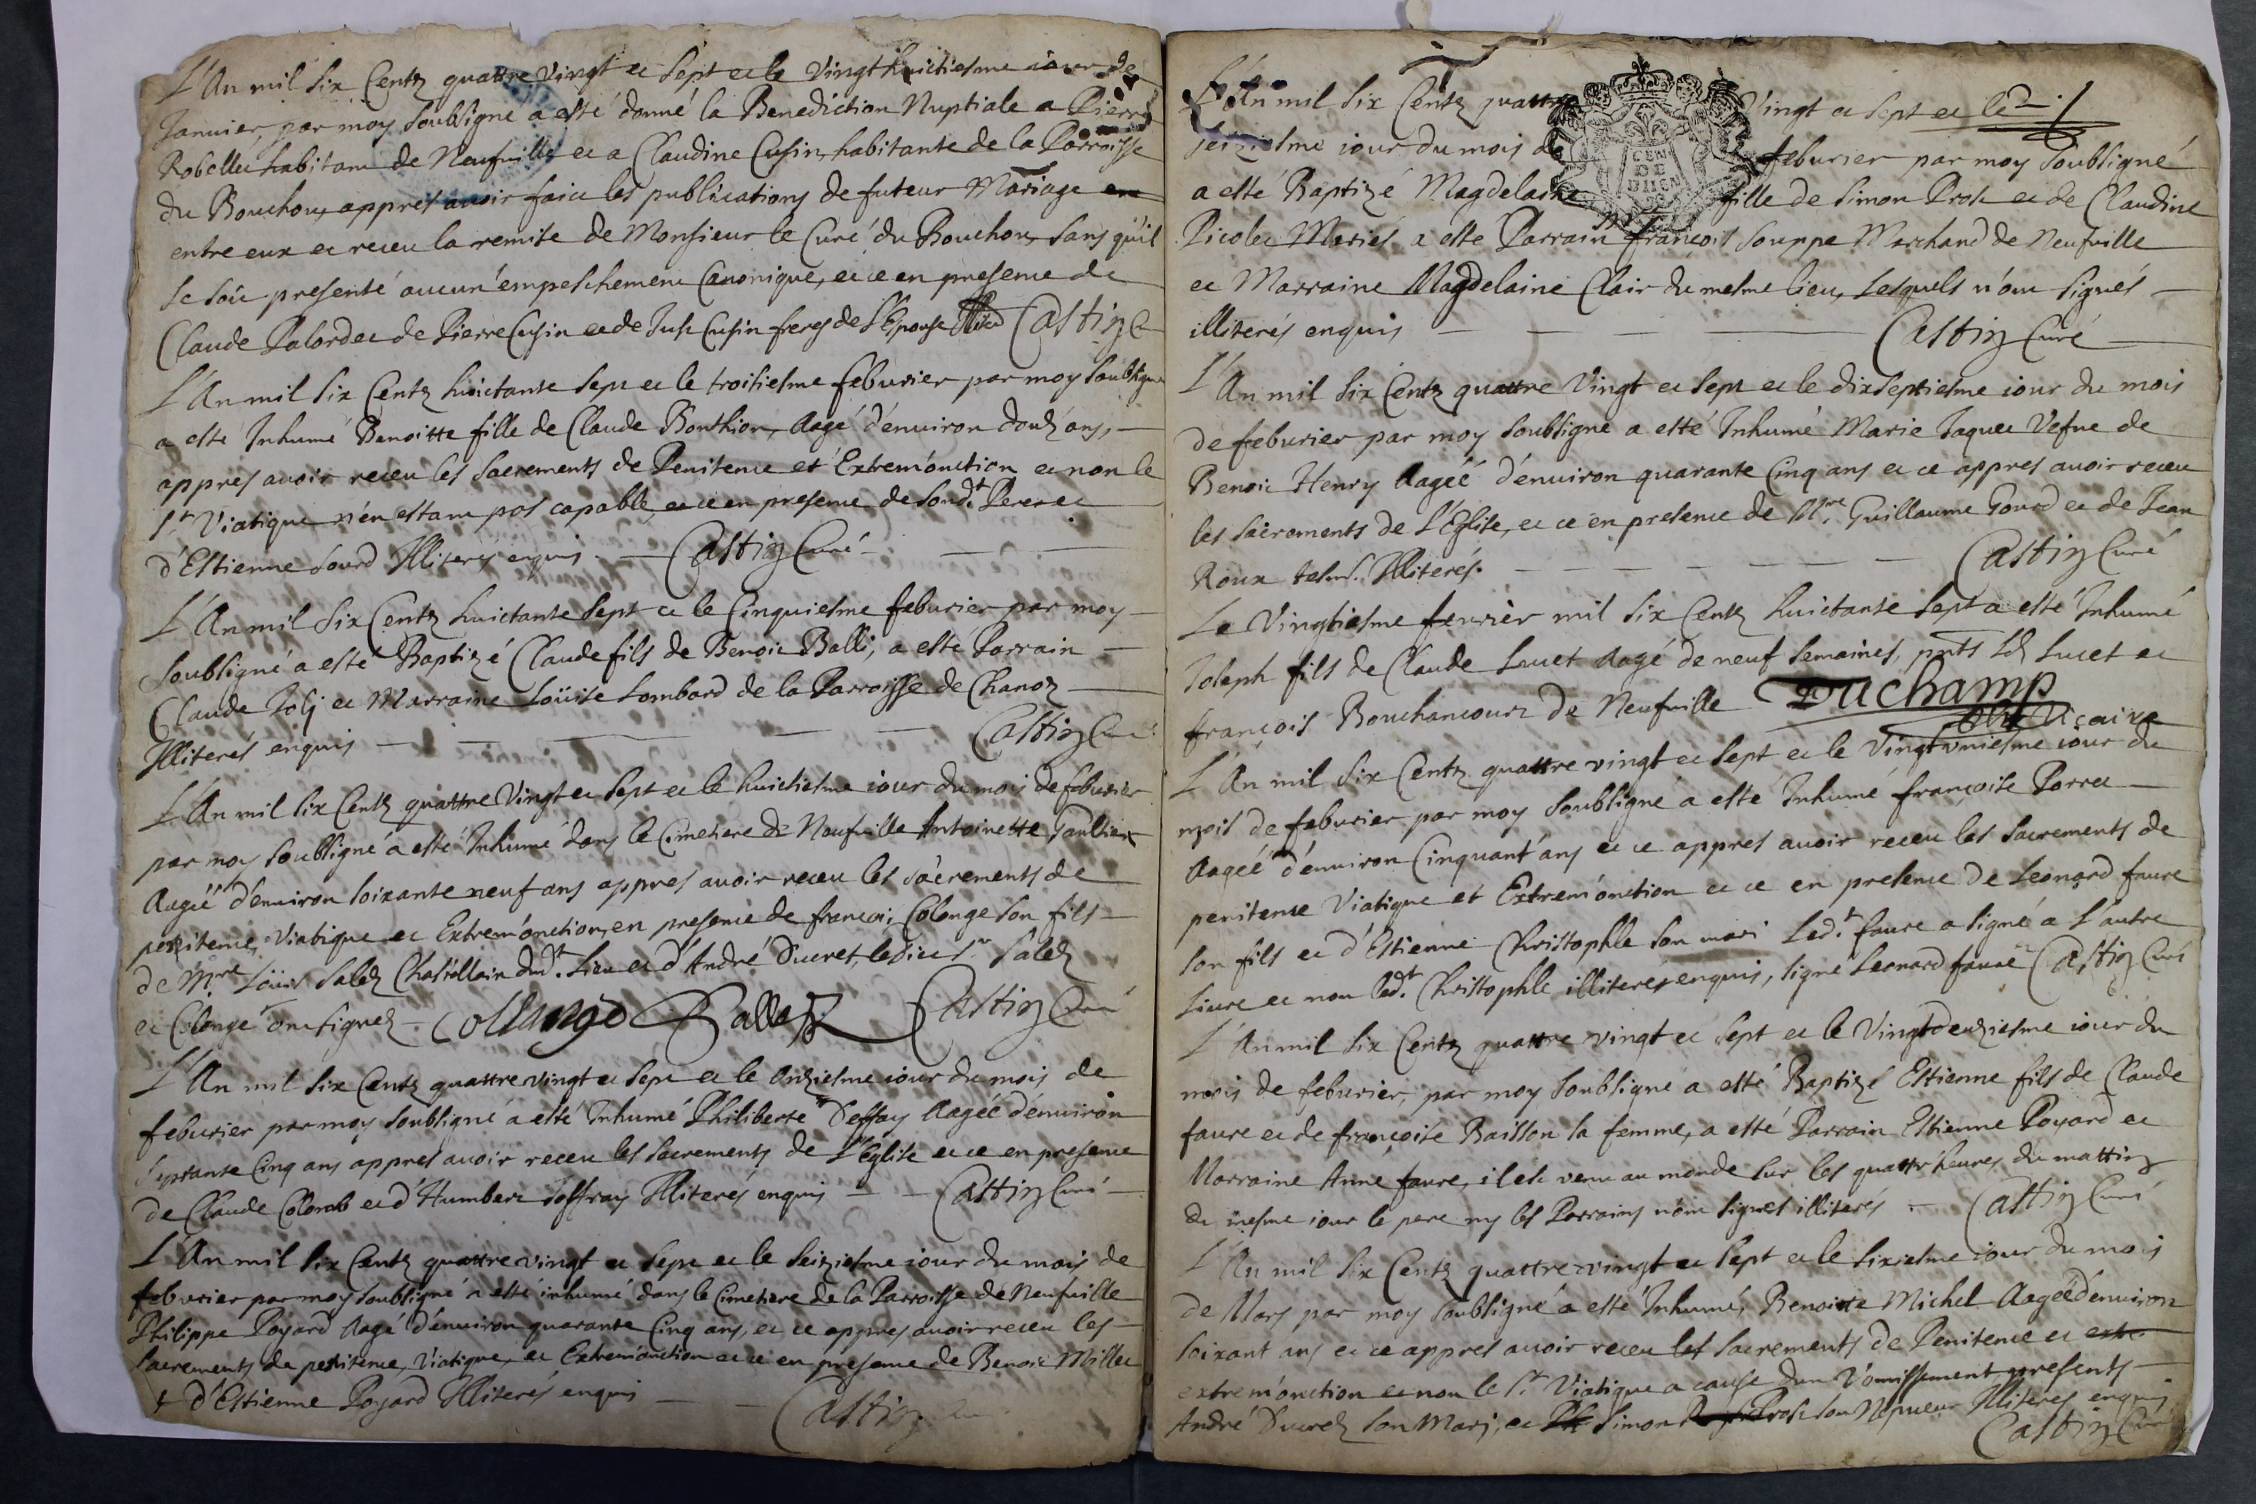 L'An mil six Centz quattre vingt et sept et le vingt huictiesme iour de
Januier, par moy soubsigné a esté donné la Benediction Nuptiale a Pierre
Robellet habitant de Neufuille et a Claudine Cusin, habitante de la Parroisse
du Bouchou, appres auoir faict les publications de futeur Mariage
entre eux et receu la remise de Monsieur le Curé du Bouchou, sans qu'il
se soit presenté aucun' empeschement Canonique, et ce en presence de
Claude Palordet de Pierre Cusin et de Just Cusin freres de l'Espouse Castin C
L'An mil six Centz huictante sept et le troisiesme feburier par moy soubsigné
a esté Inhumé Benoitte fille de Claude Bonthion, Aagé d'enuiron douz' ans,
appres auoir receu les sacrements de Penitence et Extrem'onction et non le
St Viatique n'en estant pas capable, et ce en presence de sondt Pere et
d'Estienne Sourd Illiterés enquis Castin Curé
L'An mil six Centz huictante sept et le Cinquiesme feburier par moy
soubsigné a esté Baptizé Claude fils de Benoit Balli, a esté Parrain
Claude Jolj et Marraine Loüise Lombard de la Parroisse de Chanoz
Illiterés enquis Castin Curé
L'An mil six Centz quattre Vingt et sept et le huictiesme iour du mois de feburier
par moy soubsigné a esté Inhumé dans le Cimetiere de Neufuille Antoinette Gaultier
Aagéé d'enuiron soixante neuf ans appres auoir receu les sacrements de
penitence, Viatique et Extrem'onction, en presence de françois Colonge son fils
de Mre Loüis Salez Chastellain dudt Lieu et d'André Ducret, ledict Sr Salez
et Colonge ont signez Collange Sallez Castin Curé
L'An mil six Centz quattre vingt et sept et le onziesme iour du mois de
feburier par moy soubsigné a esté Inhumé Philiberte Deffay Aagéé d'enuiron
septante Cinq ans appres auoir receu les sacrements de l'Eglise et ce en presence
de Claude Colomb et d'Humbert Joffray Illiterés enquis Castin Curé
L'An mil six Centz quattre vingt et sept et le seiziesme iour du mois de
feburier par moy soubsigné a esté inhumé dans le Cimetiere de la Parroisse de Neufuille
Philippe Poyard Aagé d'enuiron quarante Cinq ans, et ce appres auoir receu les
sacrements de penitence, Viatique, et Extrem'onction et ce en presence de Benoit Millet
& d'Estienne Poyard Illiterés enquis Castin
L'An mil six Centz quattre Vingt et sept et le
seiziesme iour du mois de feburier par moy soubsigné
a esté Baptizé Magdelaine fille de Simon Prost et de Claudine
Picolet Mariés a esté Parrain françois Souppe Marchand de Neufuille
et Marraine Magdelaine Clair du mesme lieu, Lesquels n'ont signés
illiterés enquis Castin Curé
L'An mil six Centz quattre Vingt et sept et le dixseptiesme iour du mois
de feburier par moy soubsigné a esté Inhumé Marie Jaquet Vefue de
Benoit Henry Aagéé d'enuiron quarante Cinq ans et ce appres auoir receu
les sacrements de l'Eglise, et ce en presence de Mre Guillaume Gourd et de Jean
Roux tesms. Illiterés. Castin Curé
Le Vingtiesme feurier mil six Centz huictante sept a esté Inhumé
Joseph fils de Claude Lucet Aagé de neuf semaines, pnts Led Lucet et
françois Bouchancourt de Neufuille DUchamp
Vicaire
L'An mil six Centz quattre vingt et sept et le Vingtvniesme iour du
mois de feburier par moy soubsigné a esté Inhumé françoise Porret
Aagéé d'enuiron Cinquant' ans et ce appres auoir receu les sacrements de
penitence Viatique et Extrem'onction et ce en presence de Leonard faure
son fils et d'Estienne Christophle son mari Ledt faure a signé a l'autre
Liure et non ledt Christophle illiterés enquis, signé Leonard faure Castin Curé
L'An mil six Centz quattre vingt et sept et le Vingtdeuziesme iour du
mois de feburier, par moy soubsigné a esté Baptizé Estienne fils de Claude
faure et de françoise Baisson sa femme, a esté Parrain Estienne Poyard et
Marraine Anne faure, il est venu au monde sur les quattr' heures du mattin
du mesme iour le pere ny les Parrains n'ont signés illiterés Castin Curé
L'An mil six Centz quattre vingt et sept et le sixiesme iour du mois
de Mars par moy soubsigné a esté Inhumé, Benoite Michel Aagéé d'enuiron
soixant ans et ce appres auoir receu les sacrements de Penitence et extr
extrem'onction et non le St Viatique a cause d'un Vomissement presents
André Ducrez son Marj, et Simon Prost son Nepueur Illiteres enquis
Castin Curé